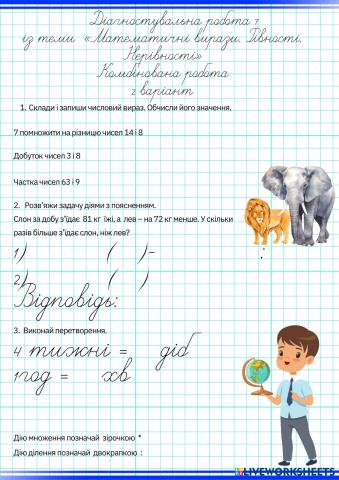 Діагностувальна робота 7
із теми «Математичні вирази. Рівності.
Нерівності»
Комбінована робота
2 варіант
1. Склади і запиши числовий вираз. Обчисли його значення.
7 помножити на різницю чисел 14 і 8
Добуток чисел 3 і 8
Частка чисел 63 і 9
2. Розв'яжи задачу діями з поясненням.
Слон за добу з'їдає 81 кг їжі, а лев – на 72 кг менше. У скільки
разів більше з'їдає слон, ніж лев?
1) ( )-
:
2) ( )
Відповідь:
3. Виконай перетворення.
4 тижні = діб
1год = хв
Дію множення позначай зірочкою *
Дію ділення позначай двокрапкою :
LIVEWORKSHEETS